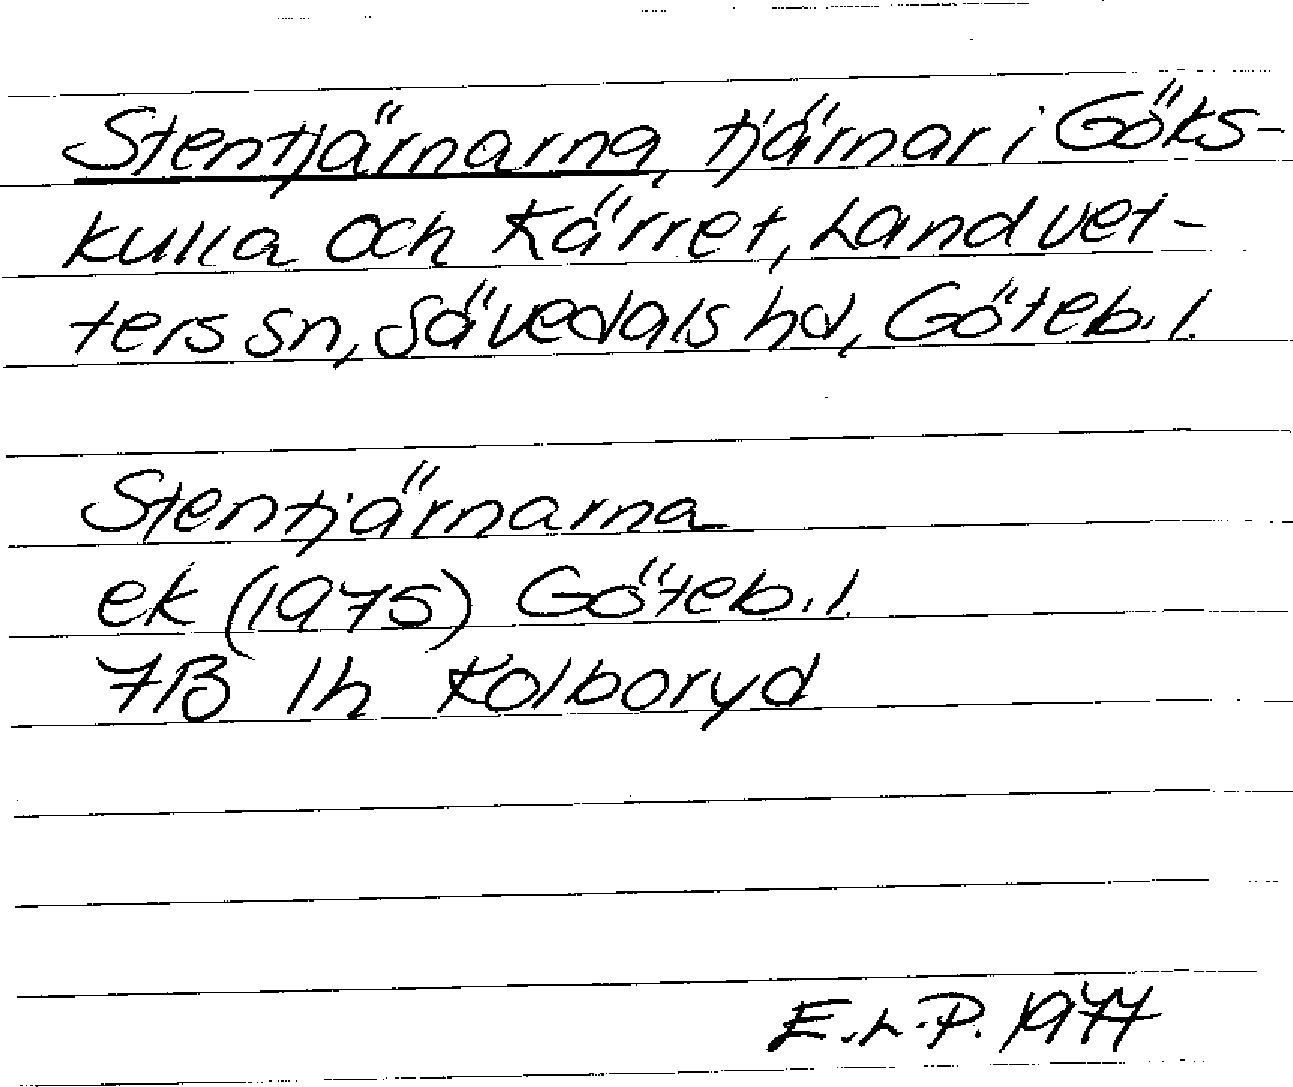 Stentjärnarna, tjärnar i Göks-
kulla och Kärret, Landvet-
ters sn, Sävedals hd, Göteb. l.
Stentjärnarna
ek (1975) Göteb. l.
7B 1h Kolboryd
E.L.P. 1977